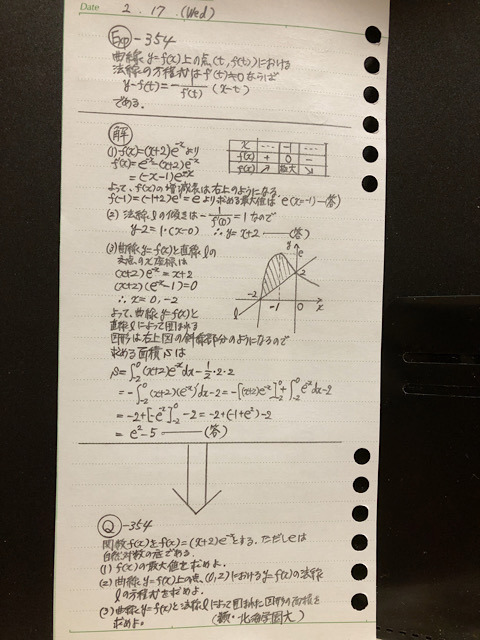 Date 2. 17. (Wed)
-354
曲線 y=f(x)上の点(t, f(t))における
法線の方程式は f'(t)≠0ならば
y-f(t)=-1/f'(t) (x-t)
である。
解
(1) f(x)=(x+2)e^{-x}より
f'(x)=e^{-x}-(x+2)e^{-x}
=(-x-1)e^{-x}
x … -1 …
f'(x) + 0 -
f(x) ↗ 極大 ↘
よって、f(x)の増減表は右上のようになる。
f(-1)=(-1+2)e^1=e より求める最大値は e (x=-1)―(答)
(2) 法線lの傾きは -1/f'(0)=1 なので
y-2=1・(x-0) ∴y=x+2 ―(答)
(3) 曲線 y=f(x)と直線 l の
交点のx座標は
(x+2)e^{-x}=x+2
(x+2)(e^{-x}-1)=0
∴ x=0, -2
y
e
2
-2
-1
0
x
l
よって、曲線 y=f(x)と
直線 l によって囲まれる
図形は右上図の斜線部分のようになるので
求める面積 S は
S=∫_{-2}^{0}(x+2)e^{-x}dx-1/2・2・2
=-∫_{-2}^{0}(x+2)(e^{-x})'dx-2=-[(x+2)e^{-x}]_{-2}^{0}+∫_{-2}^{0}e^{-x}dx-2
=-2+[-e^{-x}]_{-2}^{0}-2=-2+(-1+e^2)-2
=e^2-5 ―(答)
Q-354
関数f(x)をf(x)=(x+2)e^{-x}とする。ただしeは
自然対数の底である。
(1) f(x)の最大値を求めよ。
(2) 曲線 y=f(x)上の点(0,2)におけるy=f(x)の法線
lの方程式を求めよ。
(3) 曲線 y=f(x)と法線 l によって囲まれた図形の面積を
求めよ。 (類・北海学園大)